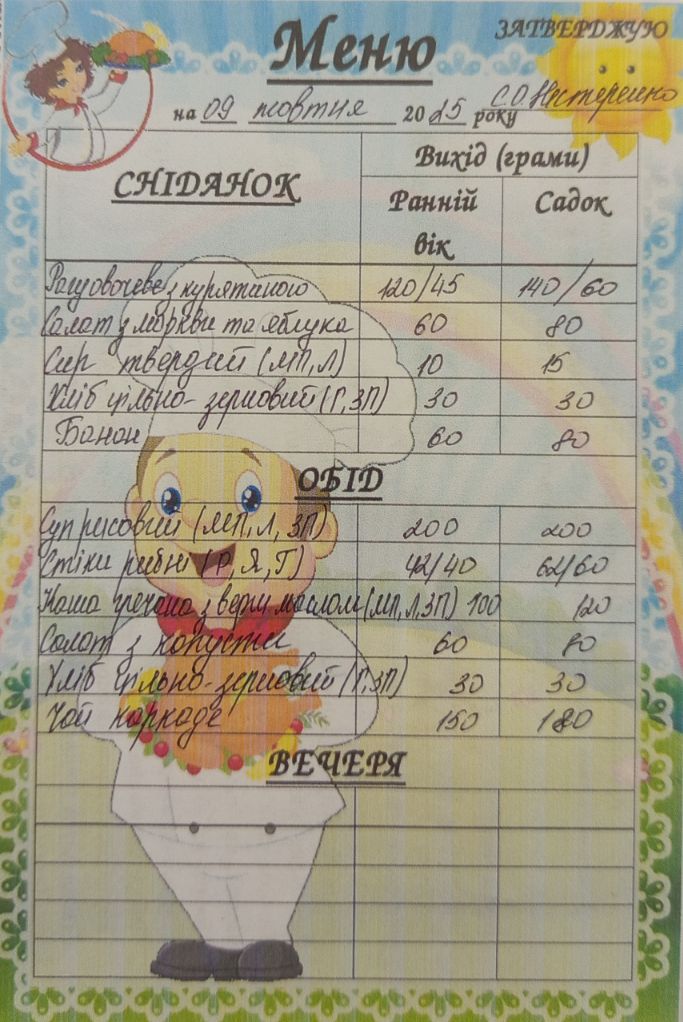 ЗАТВЕРДЖУЮ
Меню
на 09 жовтня 2025 року С.О. Нестеренко
СНІДАНОК Вихід (грами)
Ранній вік Садок
Рагу овочеве з курятиною 120/45 140/60
Салат з моркви та яблука 60 80
Сир твердий (МП, Л) 10 15
Хліб цільно-зерновий (Г, ЗП) 30 30
Банан 60 80
ОБІД
Суп рисовий (МП, Л, ЗП) 200 200
Стіки рибні (Р, Я, Г) 42/40 62/60
Каша гречана з верш маслом (МП, Л, ЗП) 100 120
Салат з капусти 60 80
Хліб цільно-зерновий (Г, ЗП) 30 30
Чай каркаде 150 180
ВЕЧЕРЯ